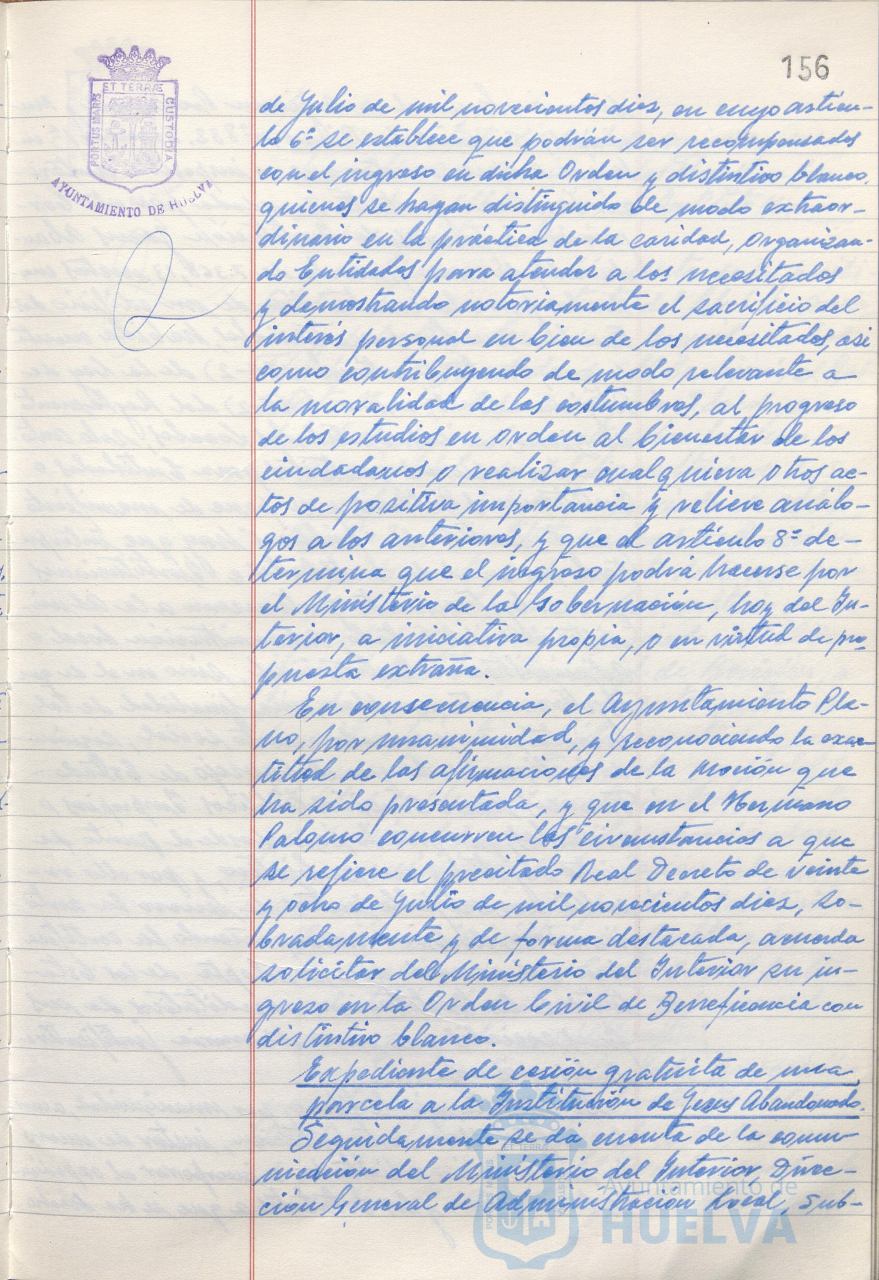 156
ET TERRÆ
PORTUS MARIS
CUSTODIA
AYUNTAMIENTO DE HUELVA
de Julio de mil novecientos diez, en cuyo artícu-
lo 6º se establece que podrán ser recompensados
con el ingreso en dicha Orden y distintivo blanco,
quienes se hagan distinguido de modo extraor-
dinario en la práctica de la caridad, organizan-
do Entidades para atender a los necesitados
y demostrando notoriamente el sacrificio del
interés personal en bien de los necesitados, asi
como contribuyendo de modo relevante a
la moralidad de las costumbres, al progreso
de los estudios en orden al bienestar de los
ciudadanos o realizar cualquiera otros ac-
tos de positiva importancia y relieve análo-
gos a los anteriores, y que el artículo 8º de-
termina que el ingreso podrá hacerse por
el Ministerio de la Gobernación, hoy del In-
terior, a iniciativa propia, o en virtud de pro-
puesta extraña.
En consecuencia, el Ayuntamiento Ple-
no, por unanimidad, y reconociendo la exac-
titud de las afirmaciones de la moción que
ha sido presentada, y que en el Hermano
Palomo concurren las circunstancias a que
se refiere el precitado Real Decreto de veinte
y ocho de Julio de mil novecientos diez, so-
bradamente y de forma destacada, acuerda
solicitar del Ministerio del Interior su in-
greso en la Orden Civil de Beneficencia con
distintivo blanco.
Expediente de cesión gratuita de una
parcela a la Institución de Jesus Abandonado.
Seguidamente se dá cuenta de la comu-
nicación del Ministerio del Interior, Direc-
ción General de Administración Local, Sub-
Ayuntamiento de
HUELVA